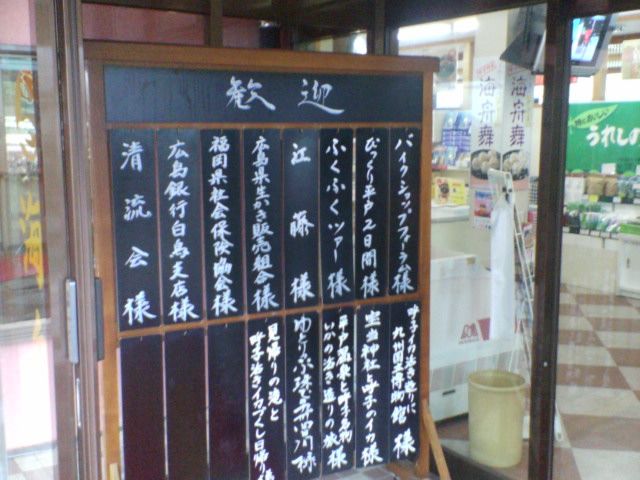 歓迎
バイクショップファーラム様
びっくり平戸2日間様
ふくふくツアー様
江藤様
広島県生かき販売組合様
福岡県社会保険協会様
広島銀行白島支店様
清流会様
呼子イカ活き造りに
九州国立博物館様
宝当神社と呼子のイカ様
平戸温泉と呼子名物
いかの活き造りの旅様
見帰りの滝と
呼子活きイカづくし日帰り様
海舟舞
海舟舞
うれしの